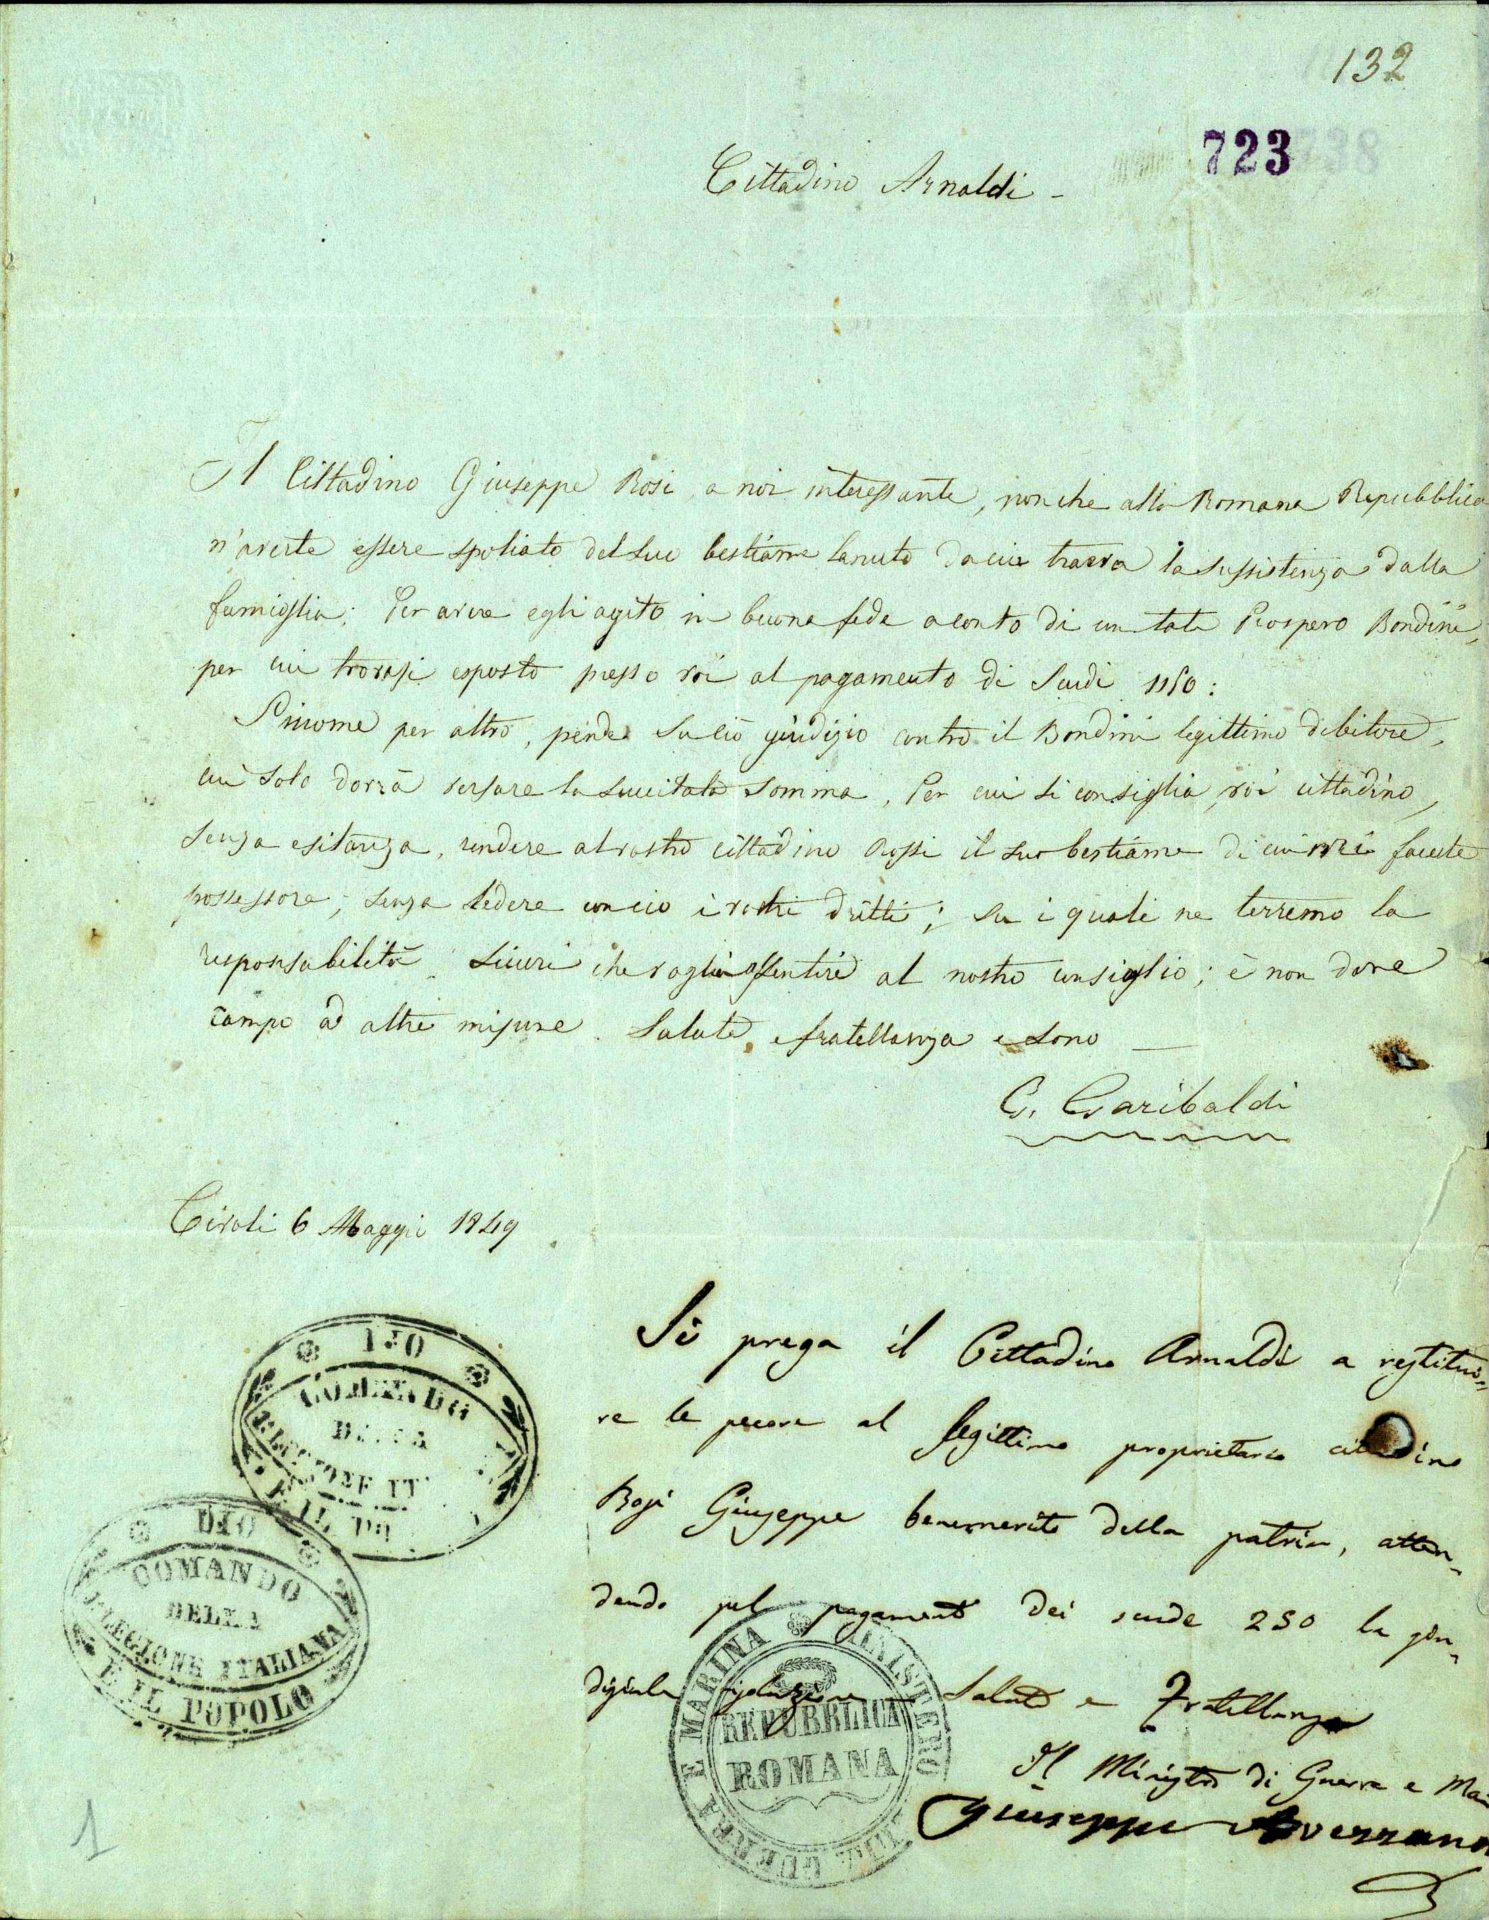 132
723
738
Cittadino Arnaldi -
Il Cittadino Giuseppe Rosi, a noi interessante, nonche alla Romana Repubblica
n'averte essere spoliato del suo bestiame lanuto da cui traeva la sussistenza dalla
famiglia; Per avere egli agito in buona fede a conto di un tale Prospero Bondini,
per cui trovasi esposto presso voi al pagamento di Scudi 1150:
Siccome per altro, pende su ciò giudizio contro il Bondini legittimo debitore,
cui solo dovrà versare la succitata somma, Per cui si consiglia voi cittadino,
senza esitanza, rendere al vostro cittadino Rossi il suo bestiame di cui vi faceste
possessore; senza ledere con ciò i vostri dritti; su i quali ne terremo la
responsabilità. Sicuri che voglia assentire al nostro consiglio; è non dare
campo ad altre misure. Salute, e fratellanza e sono —
G. Garibaldi
Tivoli 6 Maggio 1849
DIO
COMANDO
DELLA
LEGIONE IT
E IL PO
DIO
COMANDO
DELLA
1ª LEGIONE ITALIANA
E IL POPOLO
Si prega il Cittadino Arnaldi a restitui-
re le pecore al legittimo proprietario cittadino
Rosi Giuseppe benemerito della patria, atten-
dendo pel pagamento dei scudi 250 la giu-
diziale risoluzione - Salute e Fratellanza
Il Ministro di Guerra e Ma
Giuseppe Avezzana
MINISTERO DI GUERRA E MARINA
REPUBBLICA
ROMANA
1